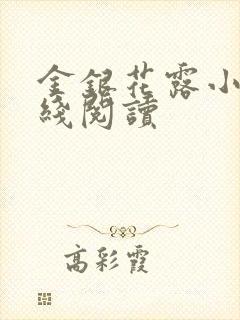 金銀花露小
綫閱讀
高彩霞